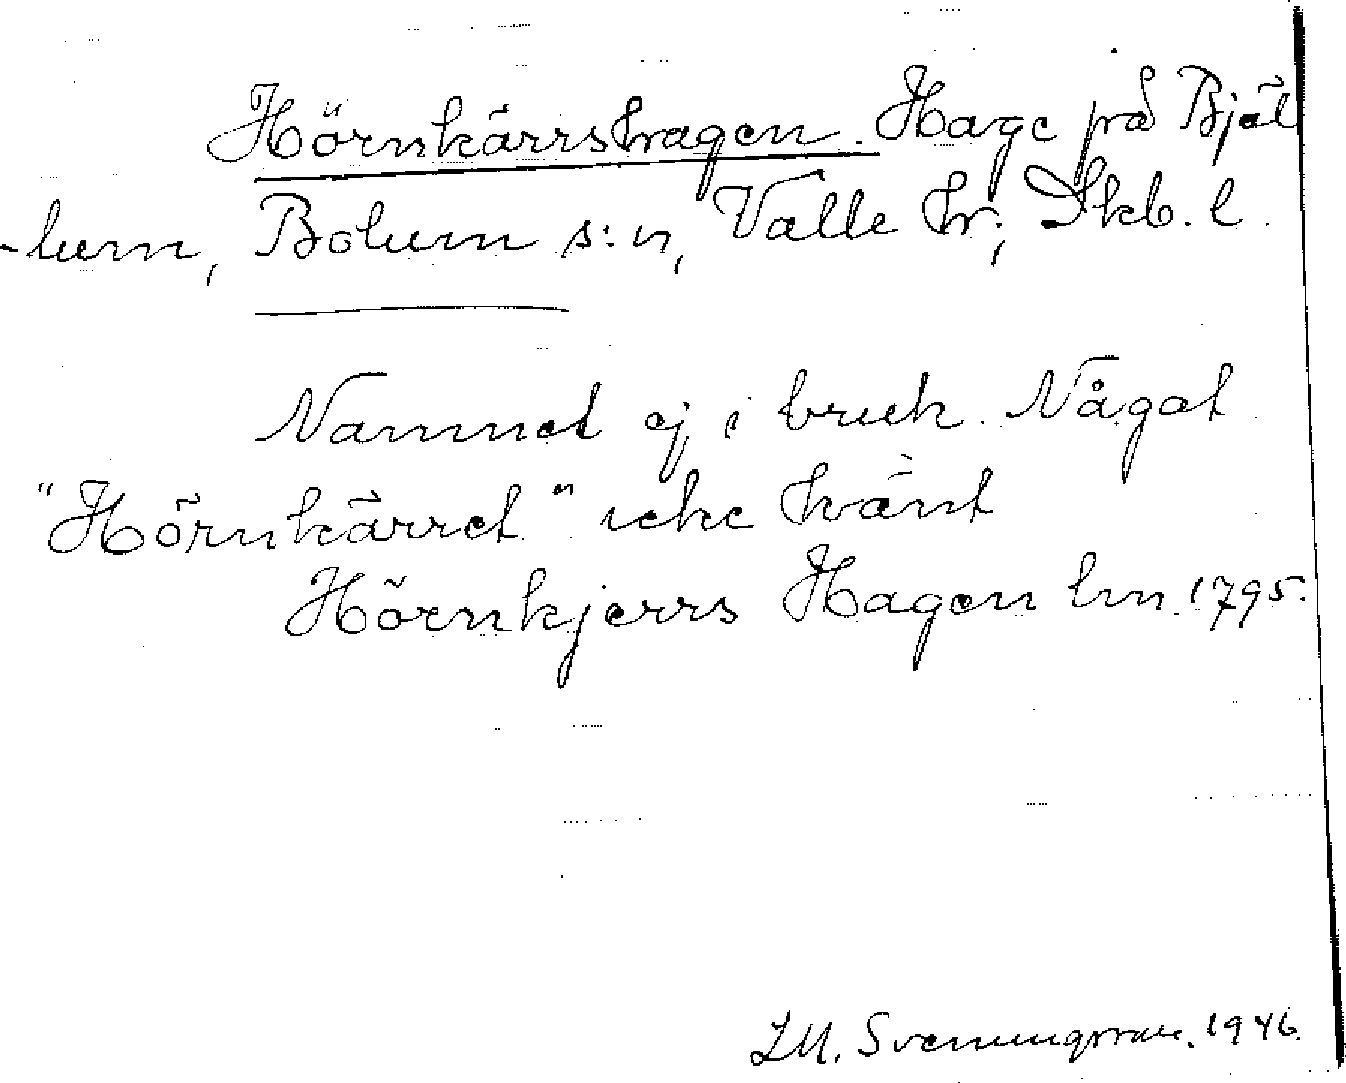 Hörnkärrshagen. Hage på Bjäl
-lum, Bolum s:n, Valle hr; Skb. l.
Namnet ej i bruk. Något
"Hörnkärret" icke känt
Hörnkjerrs Hagen lm. 1795.
I.M. Svenungsson. 1946.